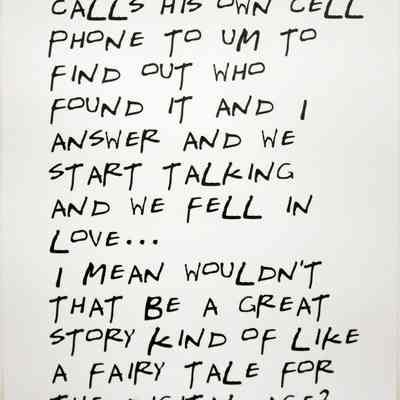 CALLS HIS OWN CELL
PHONE TO UM TO
FIND OUT WHO
FOUND IT AND I
ANSWER AND WE
START TALKING
AND WE FELL IN
LOVE...
I MEAN WOULDN'T
THAT BE A GREAT
STORY KIND OF LIKE
A FAIRY TALE FOR
THE DIGITAL AGE?